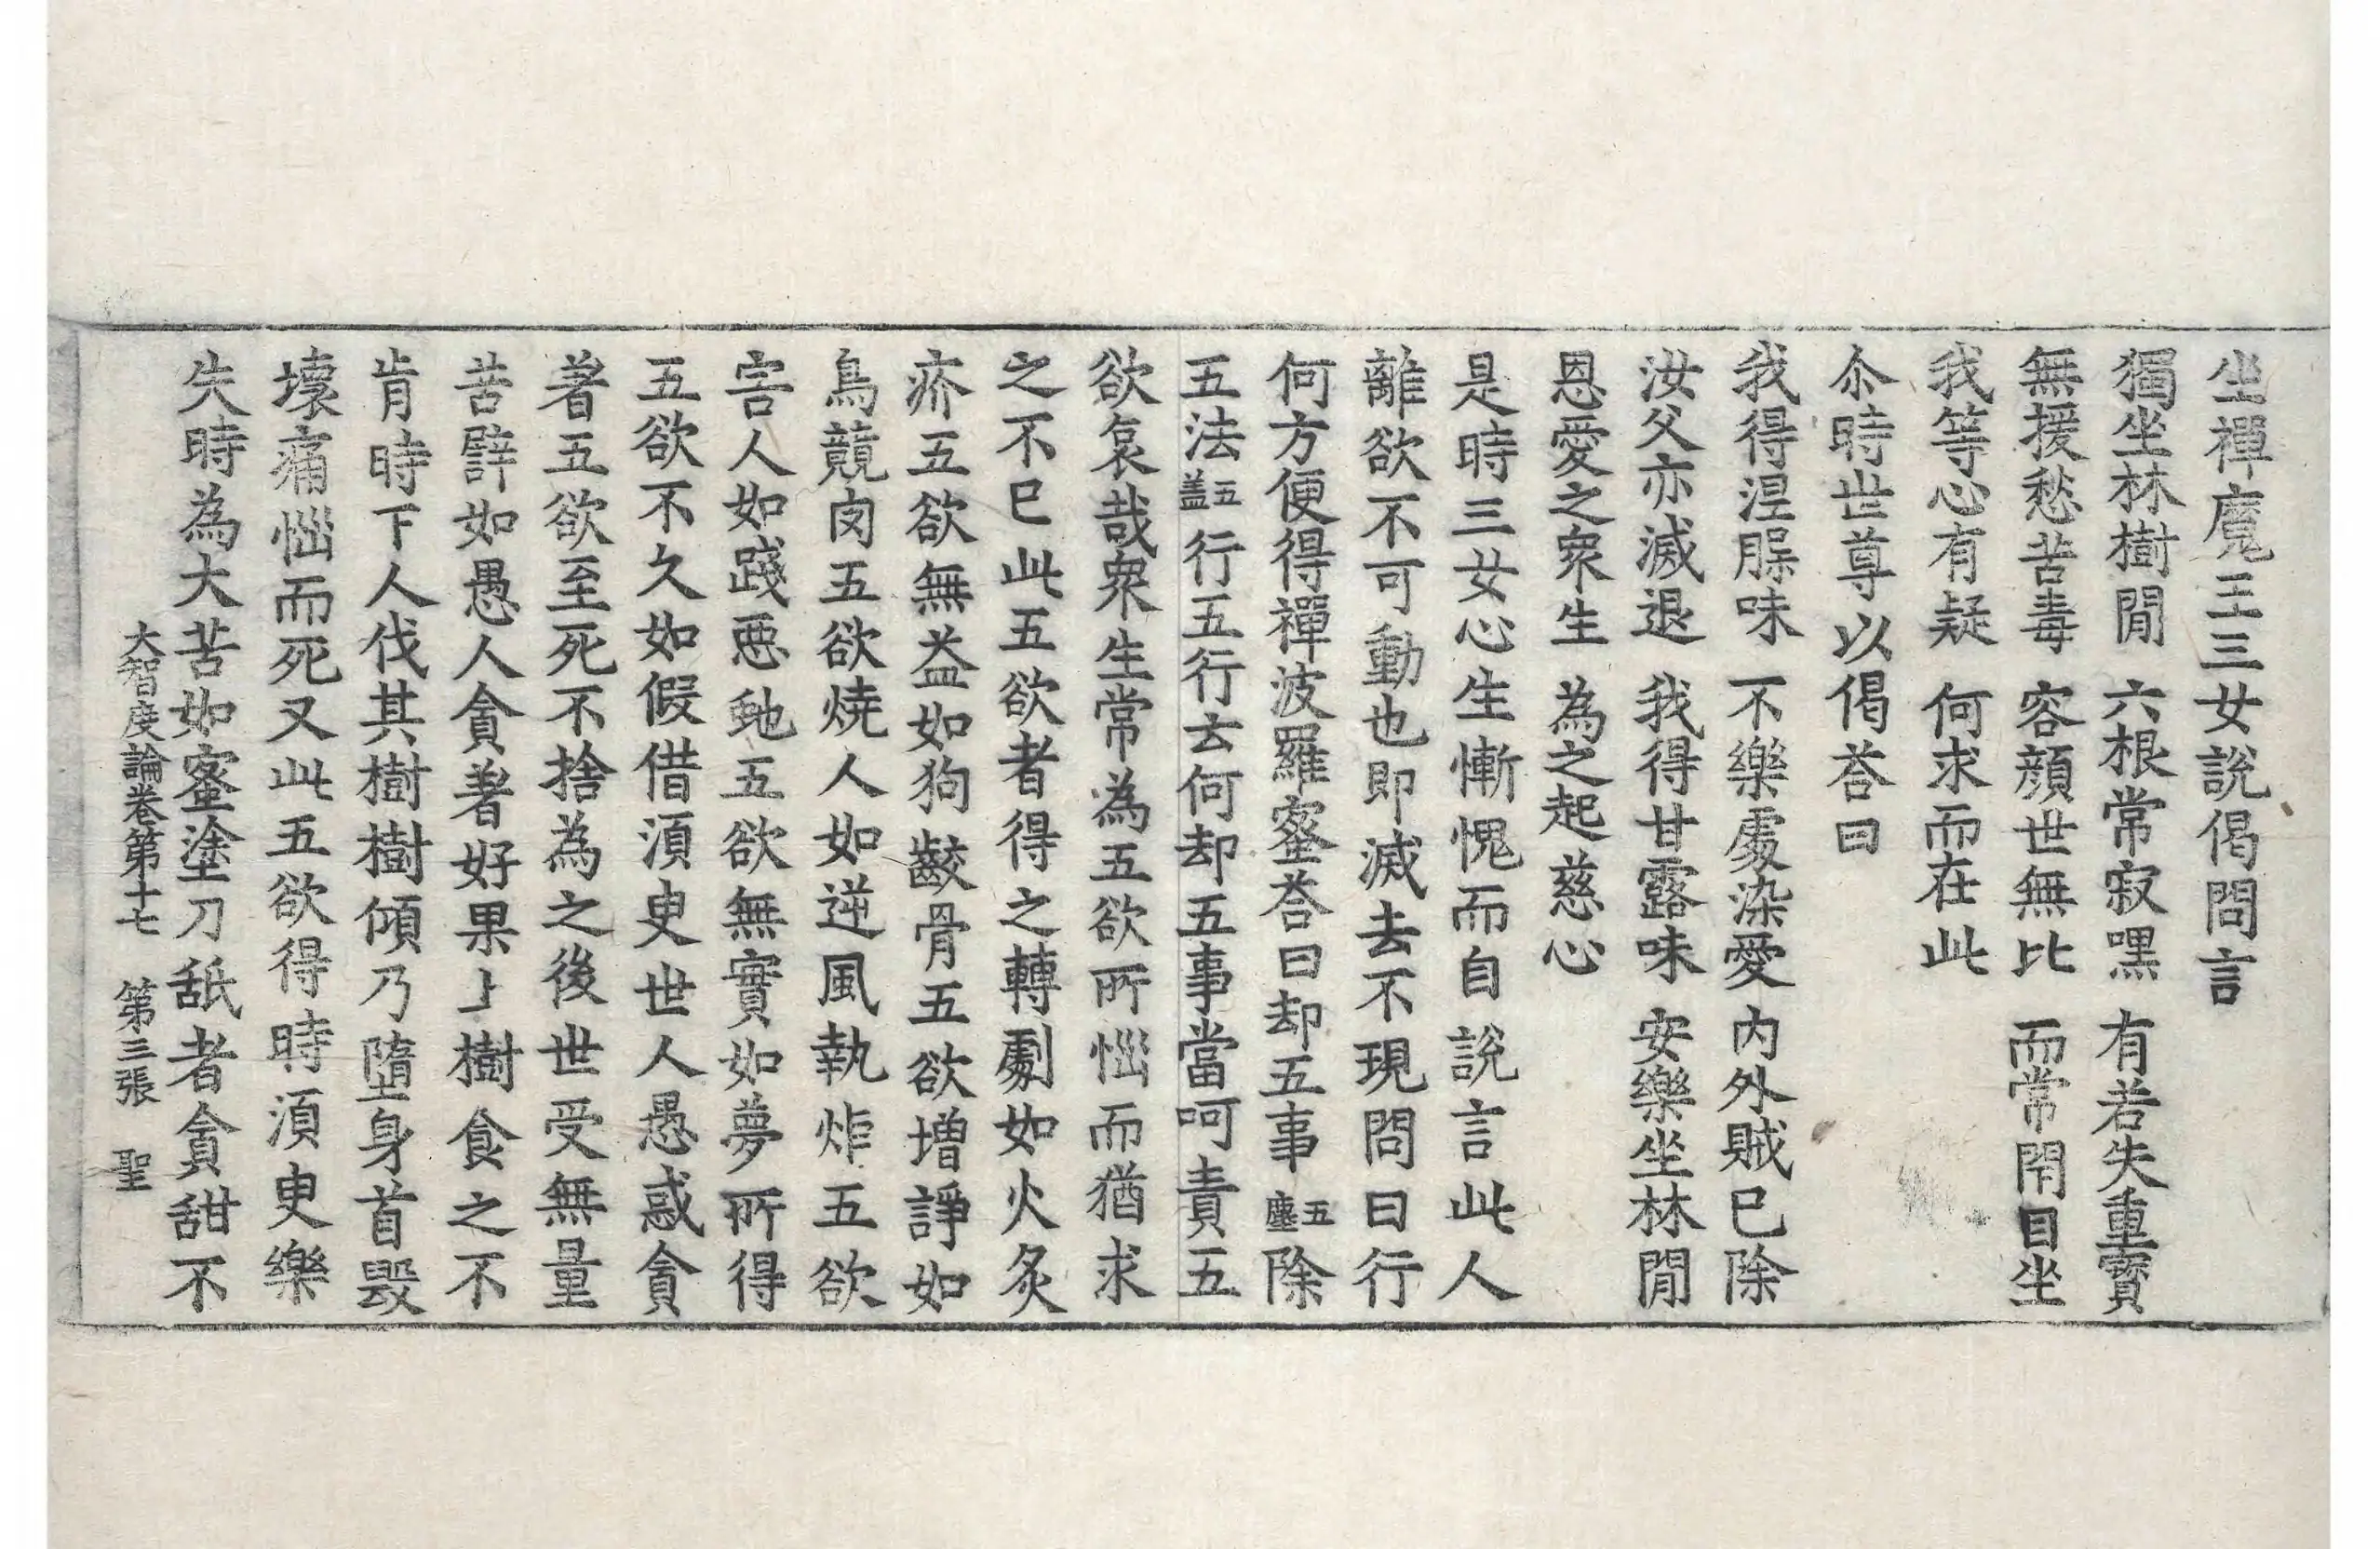 坐禪魔王三女說偈問言
獨坐林樹閒 六根常寂嘿 有若失重寶
無援愁苦毒 容顔世無比 而常閇目坐
我等心有疑 何求而在此
尒時世尊以偈荅曰
我得涅脭味 不樂處染愛 内外賊已除
汝父亦滅退 我得甘露味 安樂坐林閒
恩愛之衆生 為之起慈心
是時三女心生慚愧而自說言此人
離欲不可動也即滅去不現問曰行
何方便得禪波羅蜜荅曰却五事五塵除
五法五盖行五行云何却五事當呵責五
欲哀哉衆生常為五欲所惱而猶求
之不已此五欲者得之轉劇如火炙
疥五欲無益如狗齩骨五欲増諍如
鳥競肉五欲燒人如逆風執炬五欲
害人如踐惡虵五欲無實如夢所得
五欲不久如假借湏臾世人愚惑貪
著五欲至死不捨為之後世受無量
苦譬如愚人貪著好果上樹食之不
肯時下人伐其樹樹傾乃墮身首毀
壞痛惱而死又此五欲得時湏臾樂
失時為大苦如蜜塗刀舐者貪甜不
大智度論卷第十七 第三張 聖